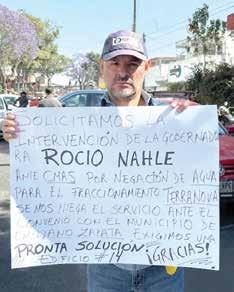 SOLICITAMOS LA
INTERVENCIÓN DE LA GOBERNADO
RA ROCIO NAHLE
ANTE CMAS POR NEGACIÓN DE AGUA
PARA EL FRACCIONAMIENTO TERRANOVA
SE NOS NIEGA EL SERVICIO ANTE EL
CONVENIO CON EL MUNICIPIO DE
EMILIANO ZAPATA EXIGIMOS UNA
PRONTA SOLUCIÓN ¡GRACIAS!
EDIFICIO #14